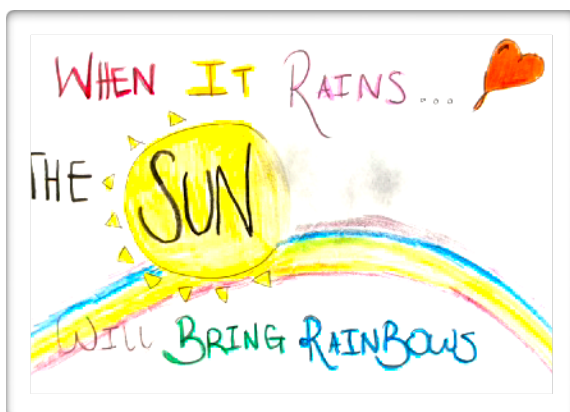 WHEN IT RAINS...
THE SUN
WILL BRING RAINBOWS